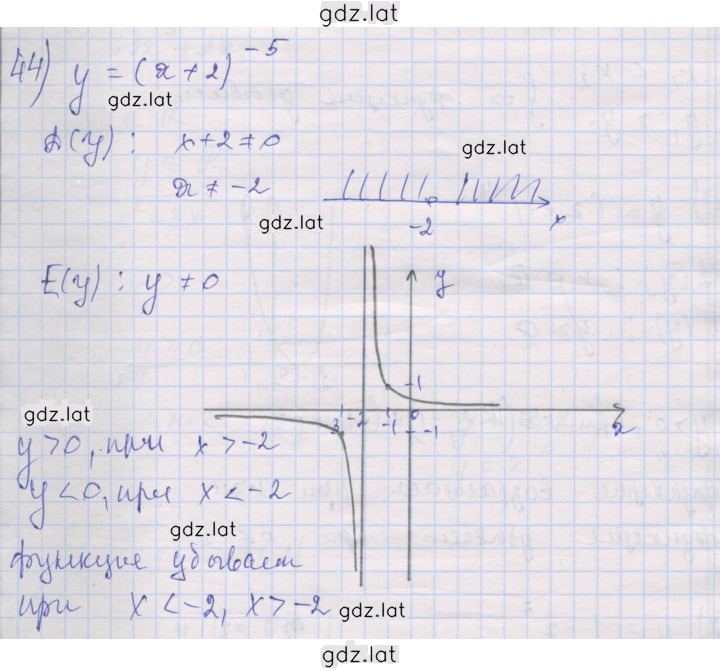 gdz.lat
44) y = (x+2)^-5
gdz.lat
D(y): x+2≠0
gdz.lat
x≠-2
-2
x
gdz.lat
E(y): y≠0
y
1
gdz.lat
-3 -2 -1 0
x
-1
y>0, при x>-2
y<0, при x<-2
gdz.lat
функция убывает
при x<-2, x>-2
gdz.lat
gdz.lat